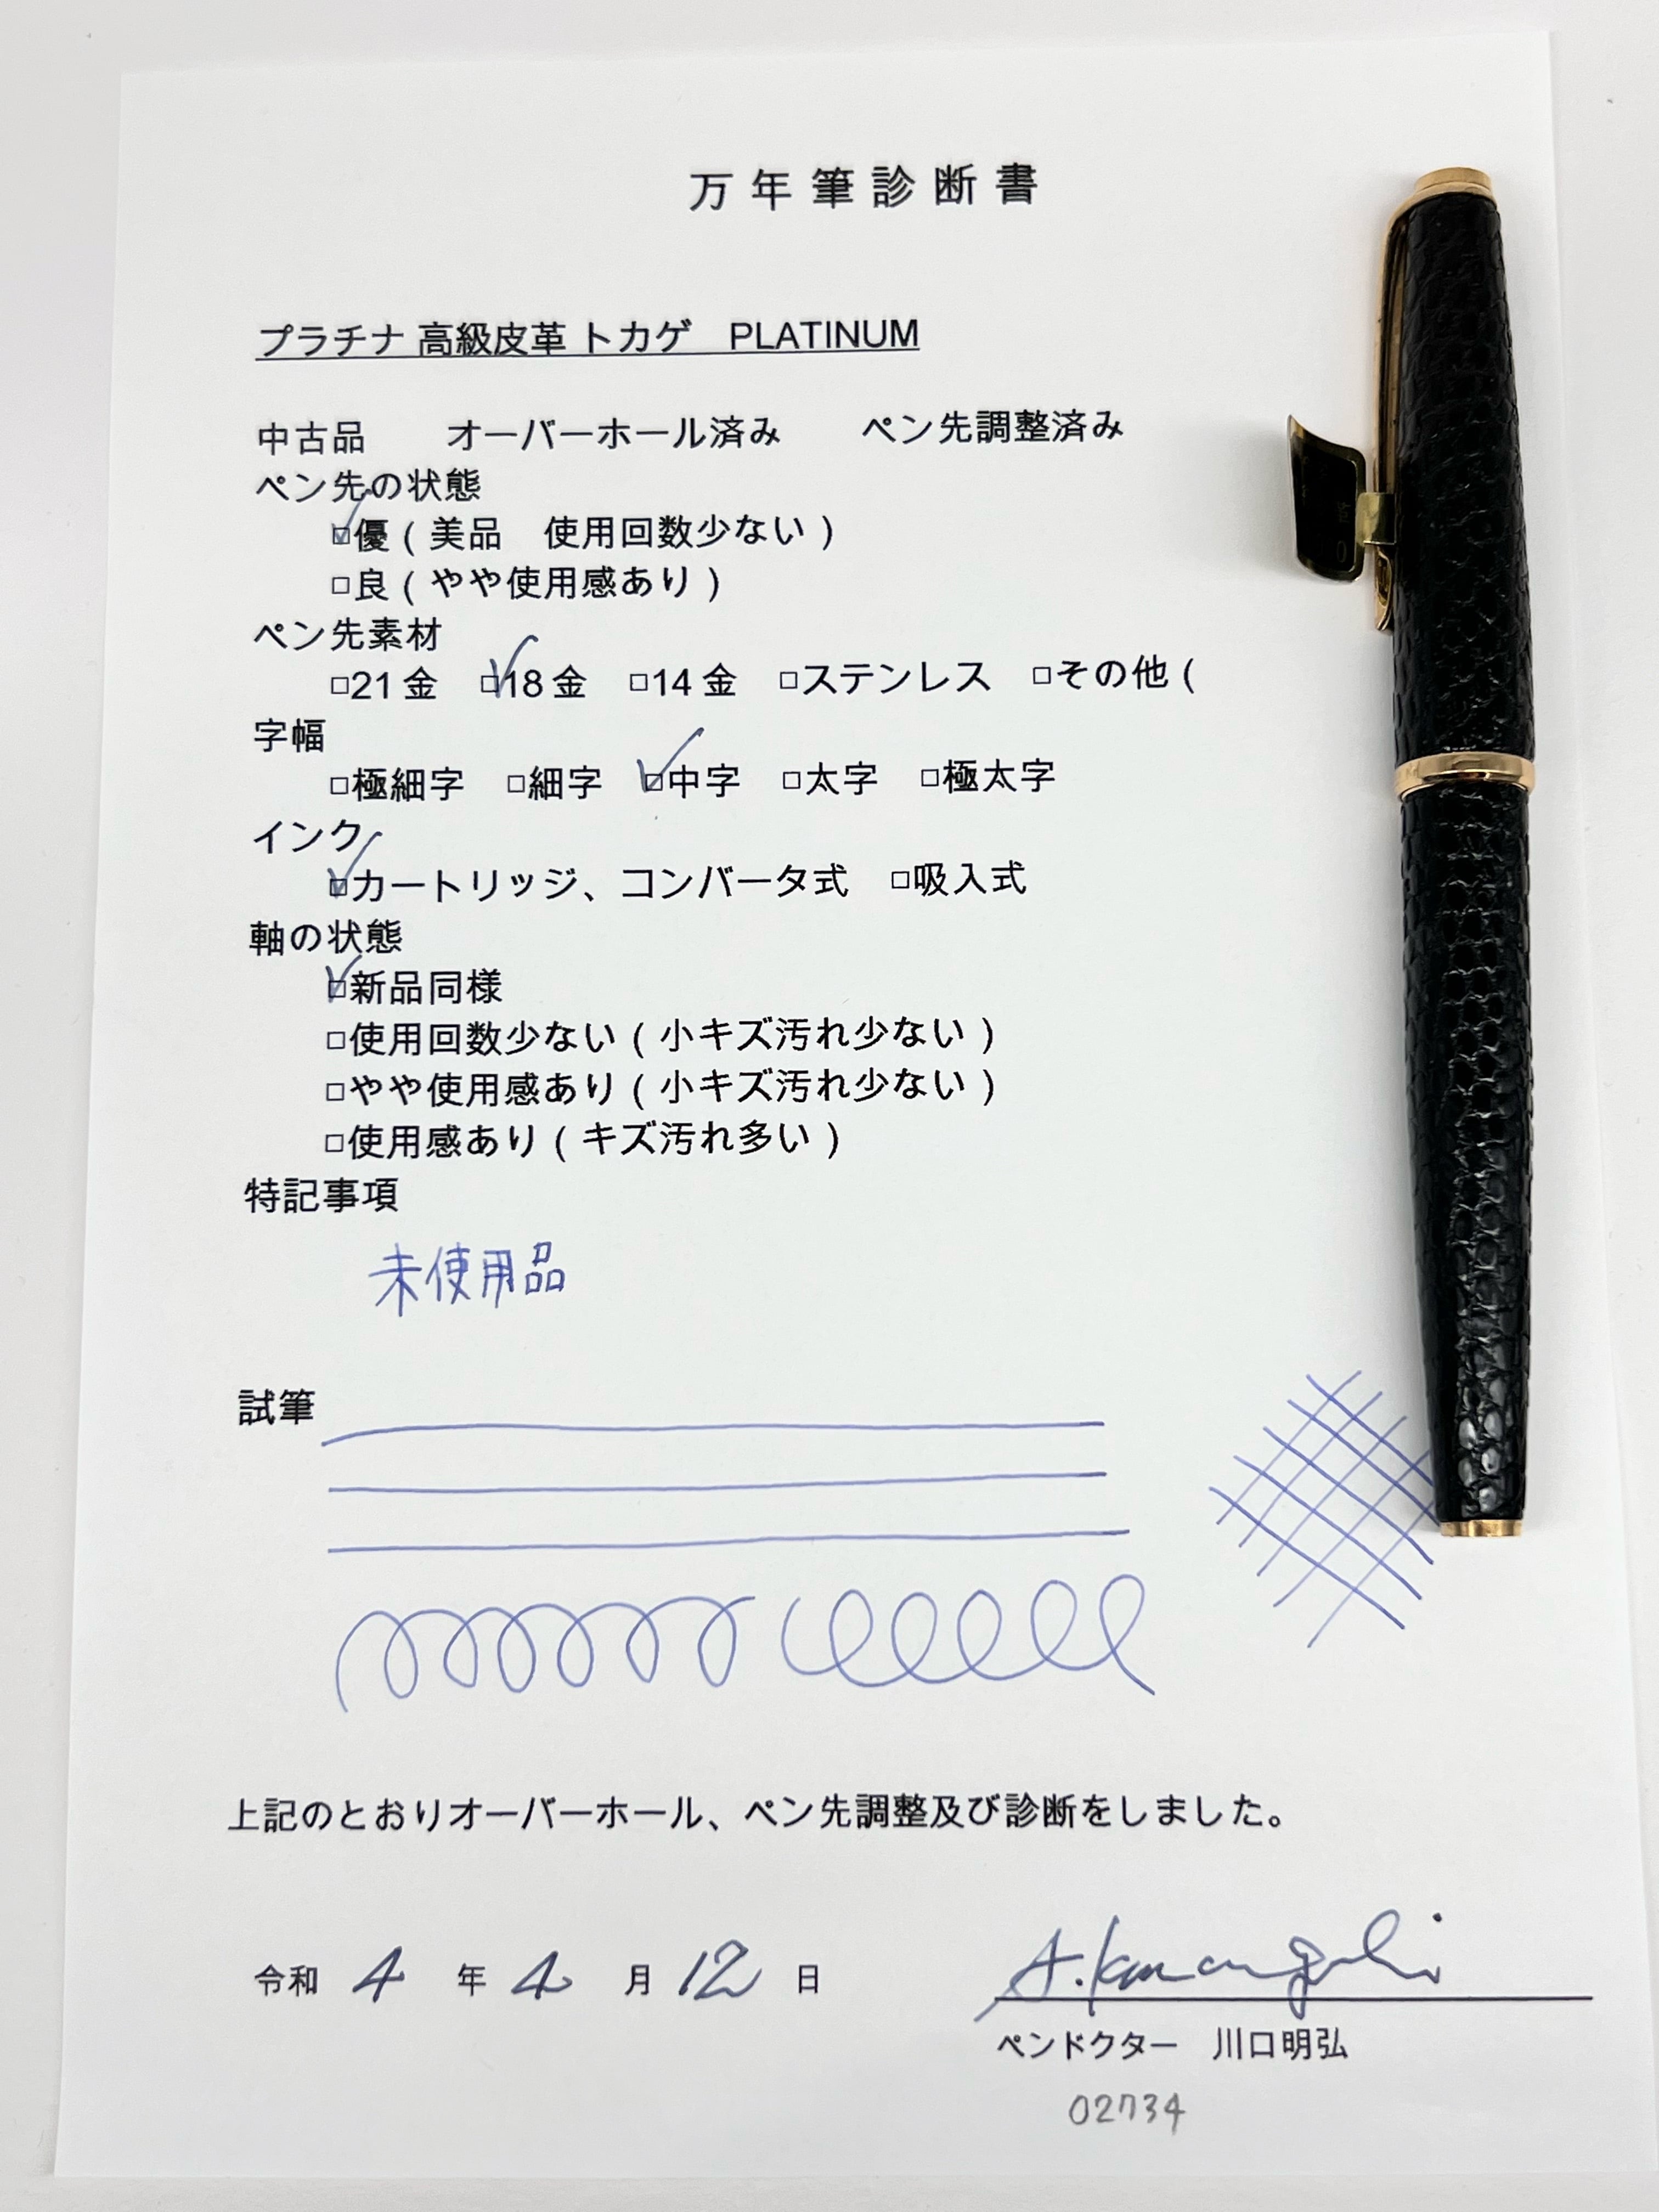 万年筆診断書
プラチナ 高級皮革 トカゲ　PLATINUM
中古品　　オーバーホール済み　　ペン先調整済み
ペン先の状態
☑優（美品　使用回数少ない）
□良（やや使用感あり）
ペン先素材
□21金　☑18金　□14金　□ステンレス　□その他（
字幅
□極細字　□細字　☑中字　□太字　□極太字
インク
☑カートリッジ、コンバータ式　□吸入式
軸の状態
☑新品同様
□使用回数少ない（小キズ汚れ少ない）
□やや使用感あり（小キズ汚れ少ない）
□使用感あり（キズ汚れ多い）
特記事項
未使用品
試筆
上記のとおりオーバーホール、ペン先調整及び診断をしました。
令和 4 年 4 月 12 日
A. Kawaguchi
ペンドクター　川口明弘
02734